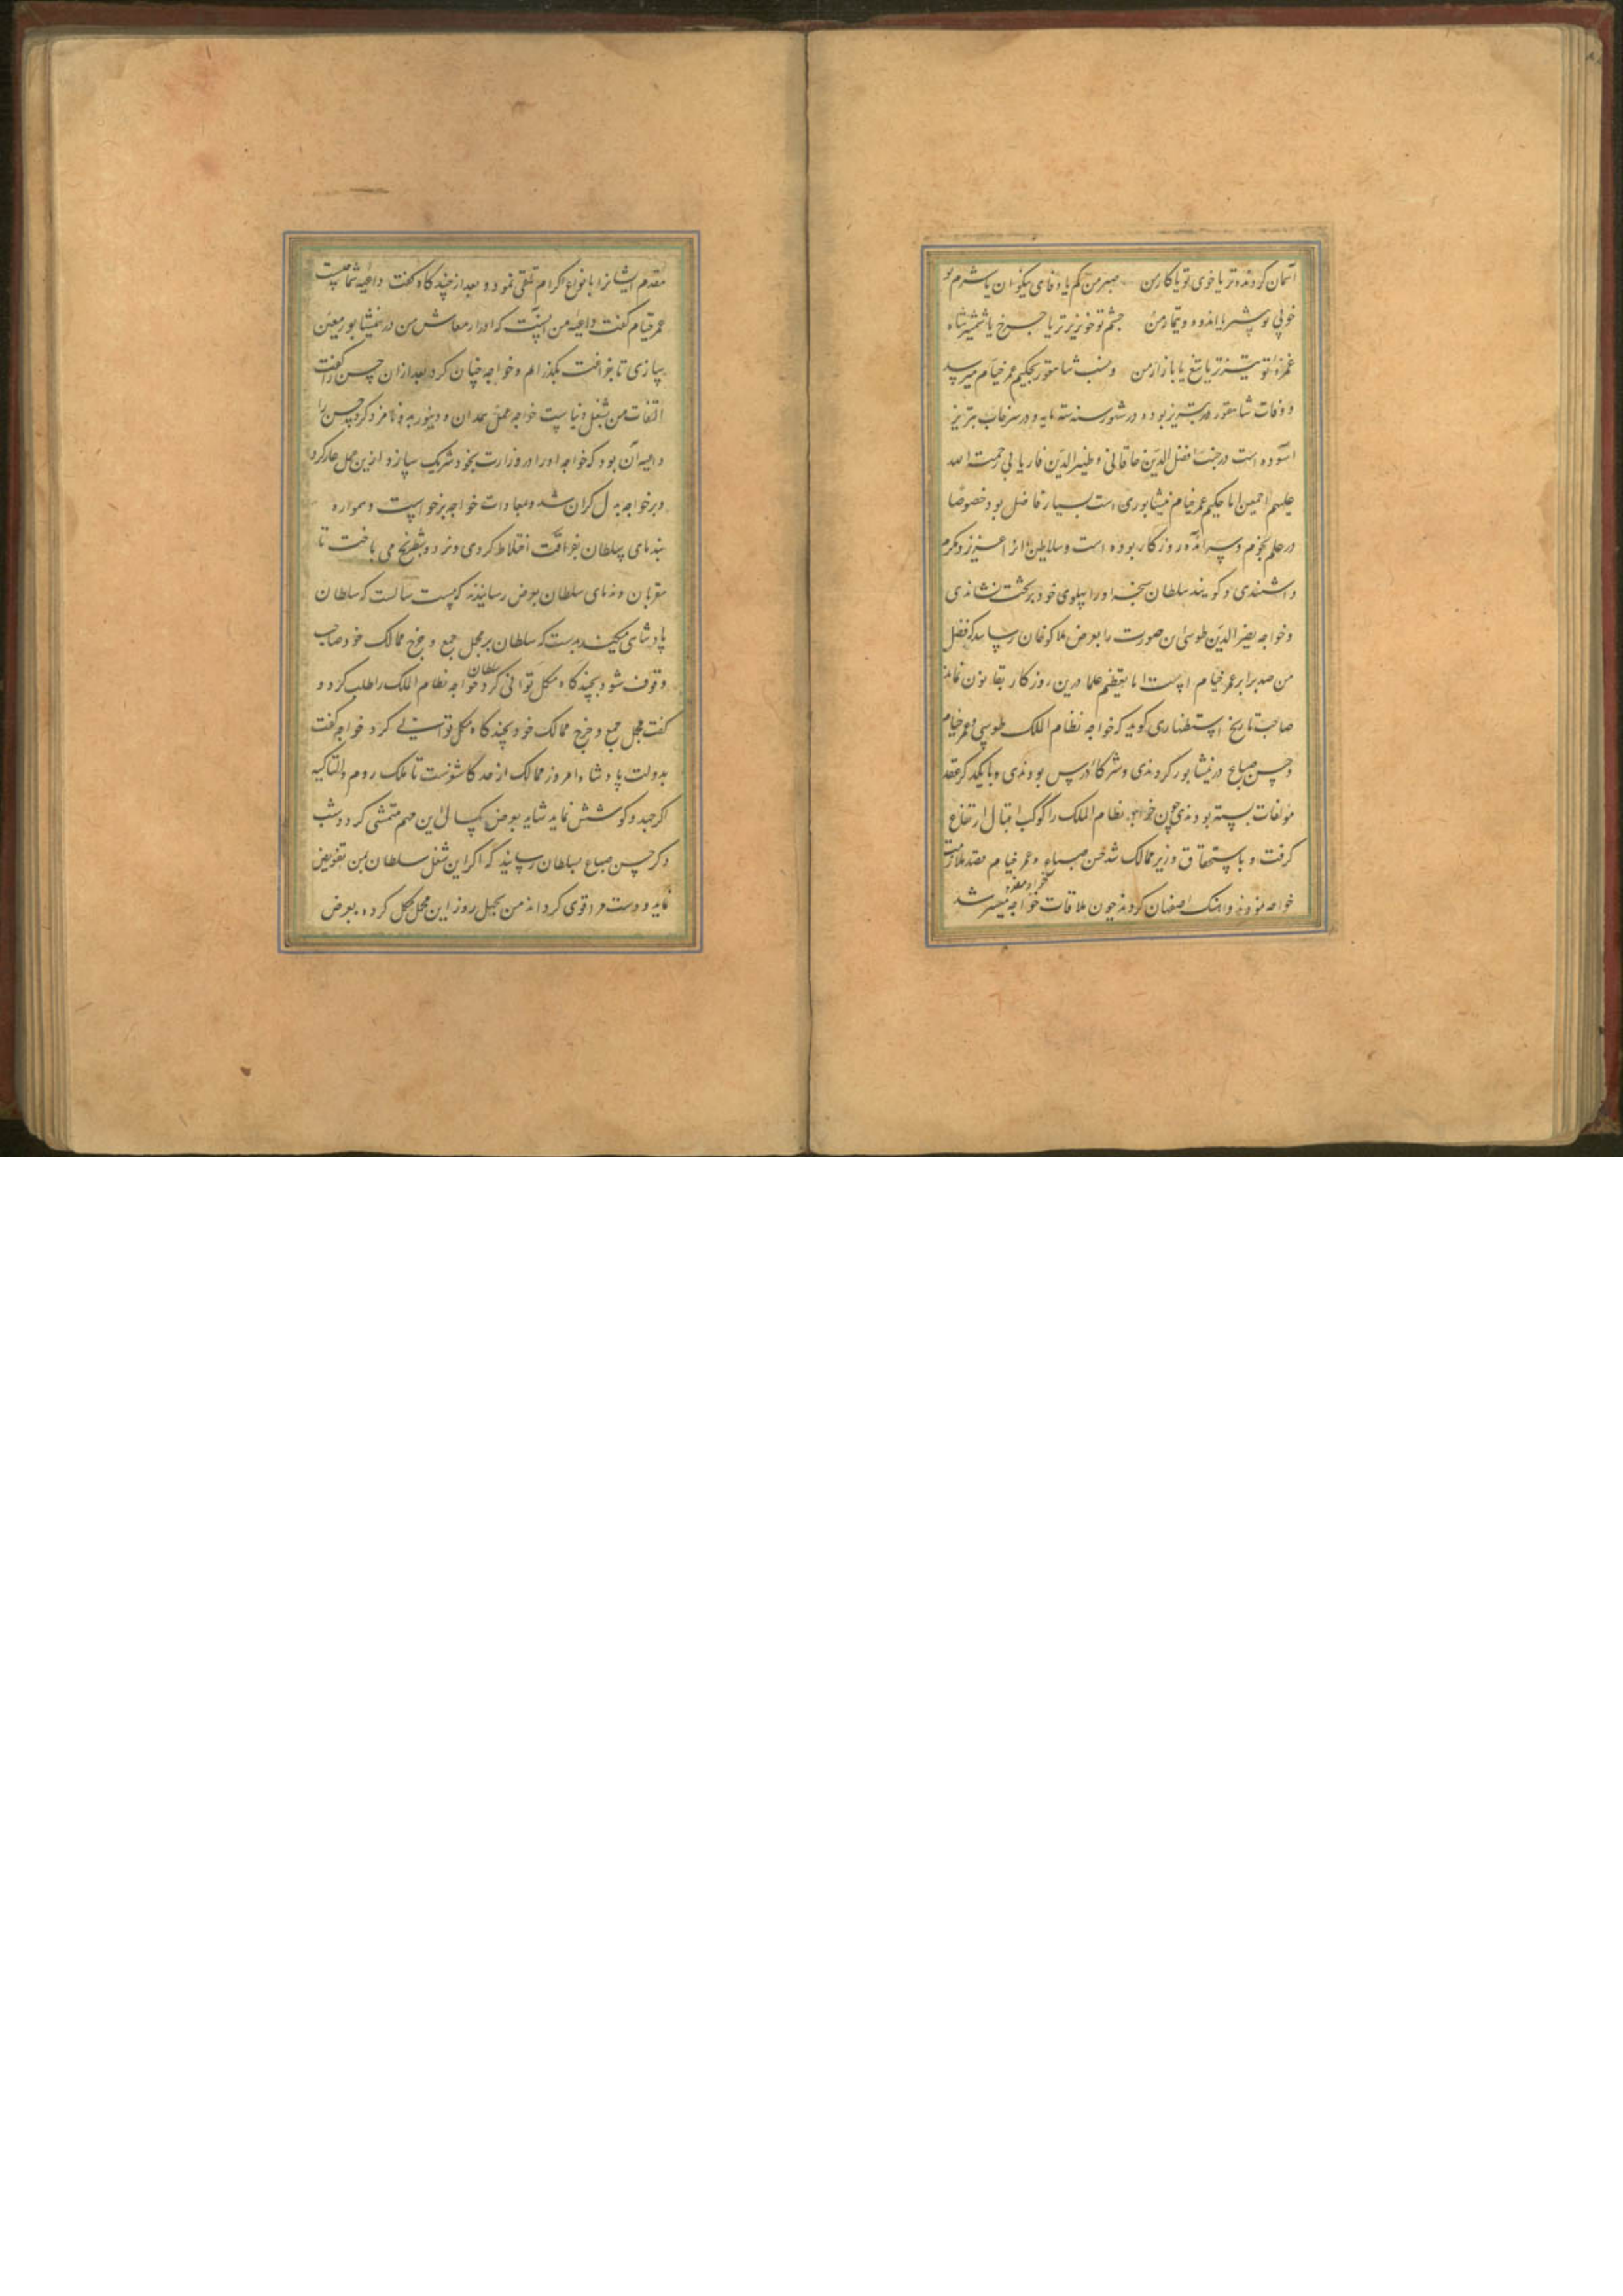 آسمان کردنده تر یا خوی تو یا کار من صبر من کم یا وفای نیکوان یا شرم تو
خوبی تو بیشتر یا اندوه و تیمار من چشم تو خونریزتر یا چرخ یا شمشیر شاه
غمزه تو تیزتر یا تیغ یا بازار من و نسب شاهفور بحکیم عمر خیام میرسد
و وفات شاهفور در تبریز بوده در شهور سنه ستمایه و در سرخاب تبریز
آسوده است در جنب افضل الدین خاقانی و ظهیر الدین فاریابی رحمة الله
علیهم اجمعین اما حکیم عمر خیام نیشابوری است بسیار فاضل بود خصوصا
در علم نجوم و سر آمد روزکار بوده است و سلاطین او را عزیز و مکرم
داشتندی و کویند سلطان سنجر او را پهلوی خود بر تخت نشاندی
و خواجه نصیر الدین طوسی این صورت را بعرض هلاکوخان رسانید که فضل
من صد برابر عمر خیام است اما تعظیم علما درین روزکار بقانون نماند
صاحب تاریخ استظهاری کوید که خواجه نظام الملک طوسی و عمر خیام
و حسن صباح در نیشابور کردندی و شرکا درس بودندی و با یکدکر عقد
مواخات بسته بودندی چون خواجه نظام الملک را کوکب اقبال ارتفاع
کرفت و باستحقاق وزیر ممالک شد حسن صباح و عمر خیام قصد ملازمت
خواجه نمودند و آهنک اصفهان کردند چون ملاقات خواجه میسر شد
مقدم ایشانرا بانواع اکرام تلقی نمود و بعد از چند کاه کفت داعیه شما چیست
عمر خیام کفت داعیه من آنست که ادرار معاش من در نیشابور معین
سازی تا بفراغت بکذرانم و خواجه چنان کرد بعد از آن حسن را کفت
التفات من بشغل دنیاست خواجه عمل همدان و دینور بدو نامزد کرد حسن را
داعیه آن بود که خواجه او را در وزارت بخود شریک سازد ازین عمل عار کرد
و بر خواجه بدل کران شد و بمعادات خواجه برخواست و همواره
بندمای سلطان بفراغت اختلاط کردی و نرد و شطرنج می باخت تا
مقربان و ندمای سلطان بعرض رسانیدند که بیست سالست که سلطان
پادشاهی میکند میبایست که سلطان بر مجمل جمع و خرج ممالک خود صاحب
وقوف شود بچند کاه مکمل توانی کرد سلطان خواجه نظام الملک را طلب کرد و
کفت مجمل جمع و خرج ممالک خود بچند کاه مکمل توانی کرد خواجه کفت
بدولت پادشاه امروز ممالک از حد کاشغرست تا ملک روم و انطاکیه
اکر جهد و کوشش نماید شاید بعرض یکسال این مهم متمشی کردد شب
دکر حسن صباح بسلطان رسانید که اکر این شغل سلطان بمن تفویض
نماید و دست مرا قوی کرداند من بچهل روز این مجمل مکمل کرده بعرض